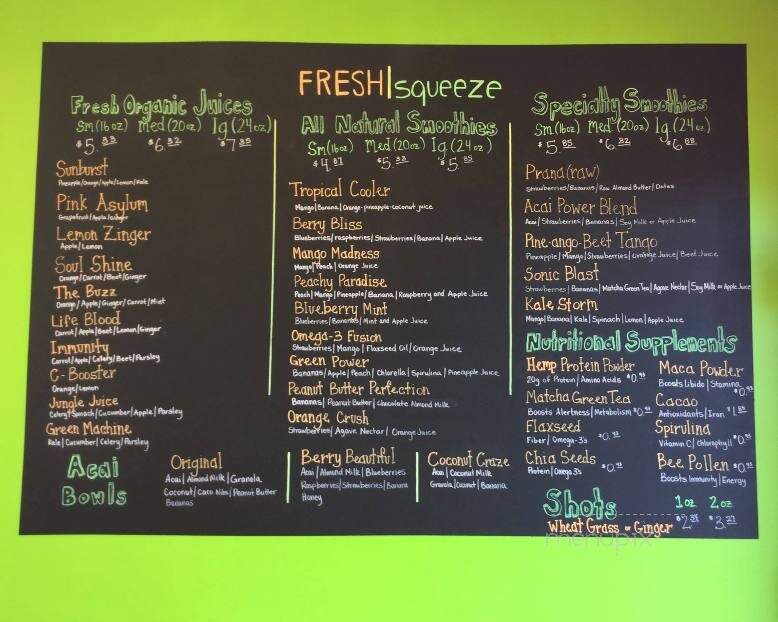 FRESH|squeeze
Fresh Organic Juices
Sm(16oz) Med(20oz) lg(24oz)
Sunburst
Pineapple/Orange/Apple/Lemon/Kale
Pink Asylum
Grapefruit/Apple/Ginger
Lemon Zinger
Apple/Lemon
Soul Shine
Orange/Carrot/Beet/Ginger
The Buzz
Orange/Apple/Ginger/Carrot/Mint
Life Blood
Carrot/Apple/Beet/Lemon/Ginger
Immunity
Carrot/Apple/Celery/Beet/Parsley
C-Booster
Orange/Lemon
Jungle Juice
Celery/Spinach/Cucumber/Apple/Parsley
Green Machine
Kale/Cucumber/Celery/Parsley
All Natural Smoothies
Sm(16oz) Med(20oz) lg(24oz)
Tropical Cooler
Mango/Banana/Orange-pineapple-coconut juice
Berry Bliss
Blueberries/raspberries/Strawberries/Banana/Apple Juice
Mango Madness
Mango/Peach/Orange Juice
Peachy Paradise
Peach/Mango/Pineapple/Banana/Raspberry and Apple Juice
Blueberry Mint
Blueberries/Bananas/Mint and Apple Juice
Omega-3 Fusion
Strawberries/Mango/Flaxseed Oil/Orange Juice
Green Power
Bananas/Apple/Peach/Chlorella/Spirulina/Pineapple Juice
Peanut Butter Perfection
Bananas/Peanut Butter/Chocolate Almond Milk
Orange Crush
Strawberries/Agave Nectar/Orange Juice
Specialty Smoothies
Sm(16oz) Med(20oz) lg(24oz)
Prana(raw)
Strawberries/Bananas/Raw Almond Butter/Dates
Acai Power Blend
Acai/Strawberries/Bananas/Soy Milk or Apple Juice
Pine-ango-Beet Tango
Pineapple/Mango/Strawberries/Orange Juice/Beet Juice
Sonic Blast
Strawberries/Bananas/Matcha Green Tea/Agave Nectar/Soy Milk or Apple Juice
Kale Storm
Mango/Banana/Kale/Spinach/Lemon/Apple Juice
Nutritional Supplements
Hemp Protein Powder
20g of Protein/Amino Acids
Matcha Green Tea
Boosts Alertness/Metabolism
Flaxseed
Fiber/Omega-3's
Chia Seeds
Protein/Omega 3's
Maca Powder
Boosts Libido/Stamina
Cacao
Antioxidants/Iron
Spirulina
Vitamin C/Chlorophyll
Bee Pollen
Boosts Immunity/Energy
Shots 1oz 2oz
Wheat Grass or Ginger
Acai
Bowls
Original
Acai/Almond Milk/Granola
Coconut/Caco Nibs/Peanut Butter
Bananas
Berry Beautiful
Acai/Almond Milk/Blueberries
Raspberries/Strawberries/Banana
Honey
Coconut Craze
Acai/Coconut Milk
Granola/Coconut/Banana
menupix